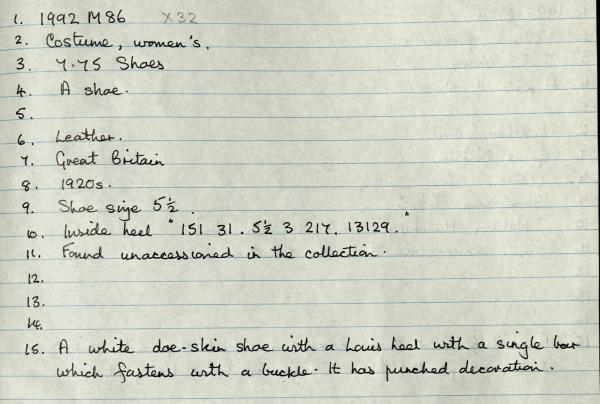 1. 1992 M 86 X32
2. Costume, women's.
3. 7.75 Shoes
4. A shoe.
5.
6. Leather.
7. Great Britain
8. 1920s.
9. Shoe size 5½.
10. Inside heel "151 31. 5½ 3 217. 13129."
11. Found unaccessioned in the collection.
12.
13.
14.
15. A white doe-skin shoe with a Louis heel with a single bar
which fastens with a buckle. It has punched decoration.